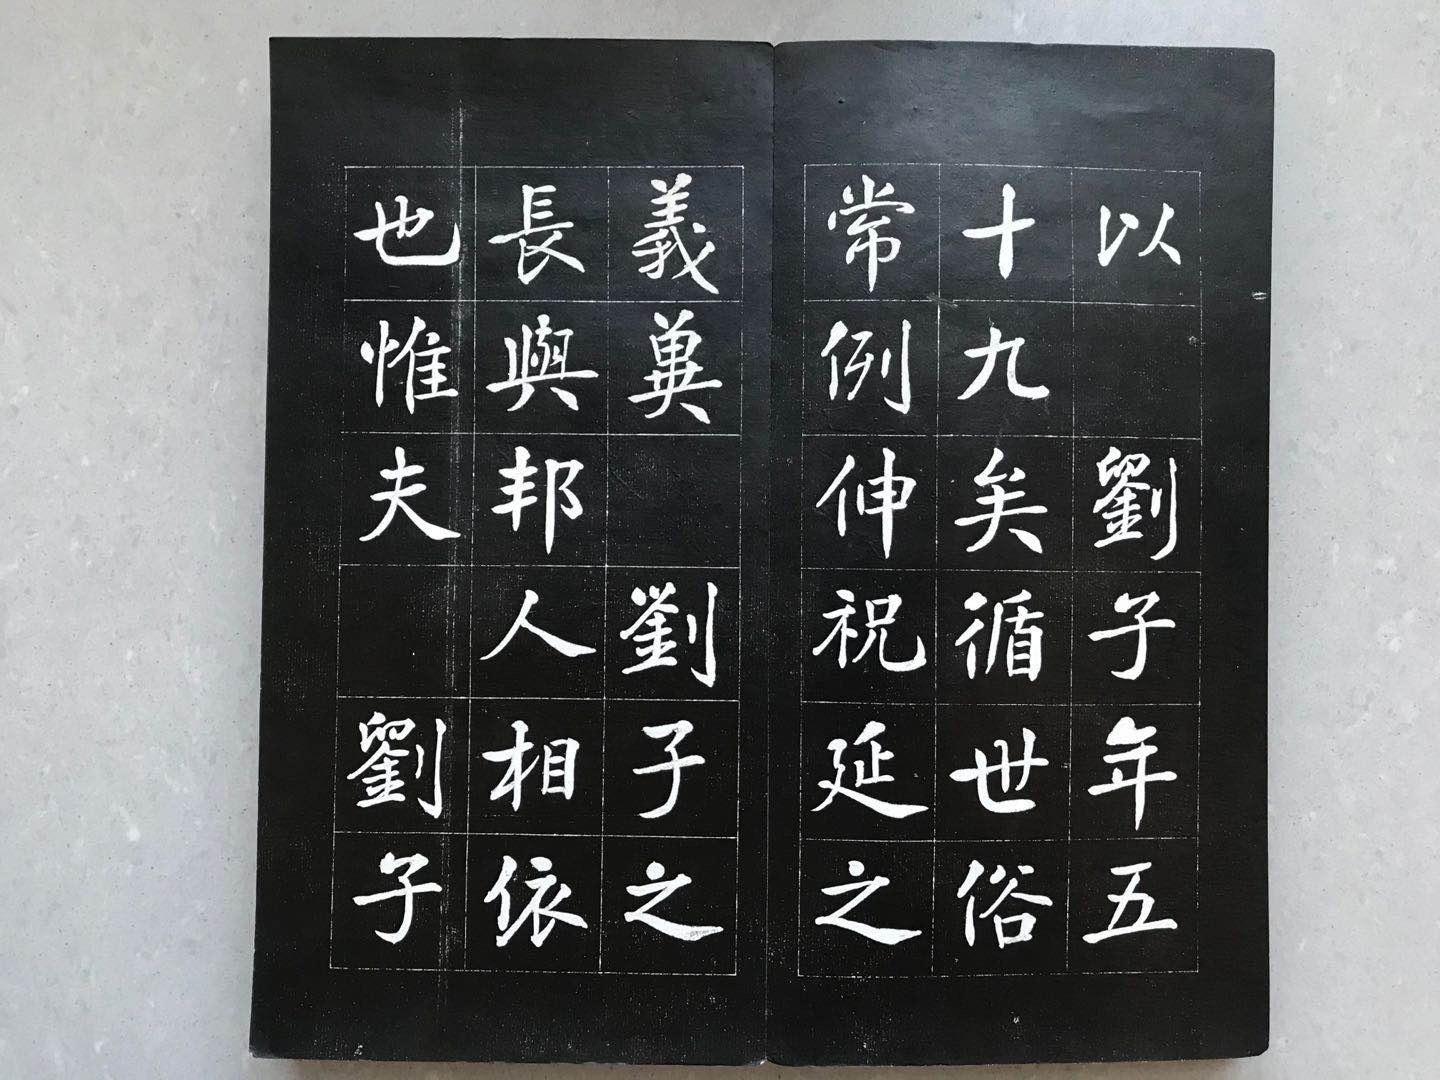 以　劉子年五
十九矣循世俗
常例伸祝延之
義冀　劉子之
長與邦人相依
也惟夫　劉子